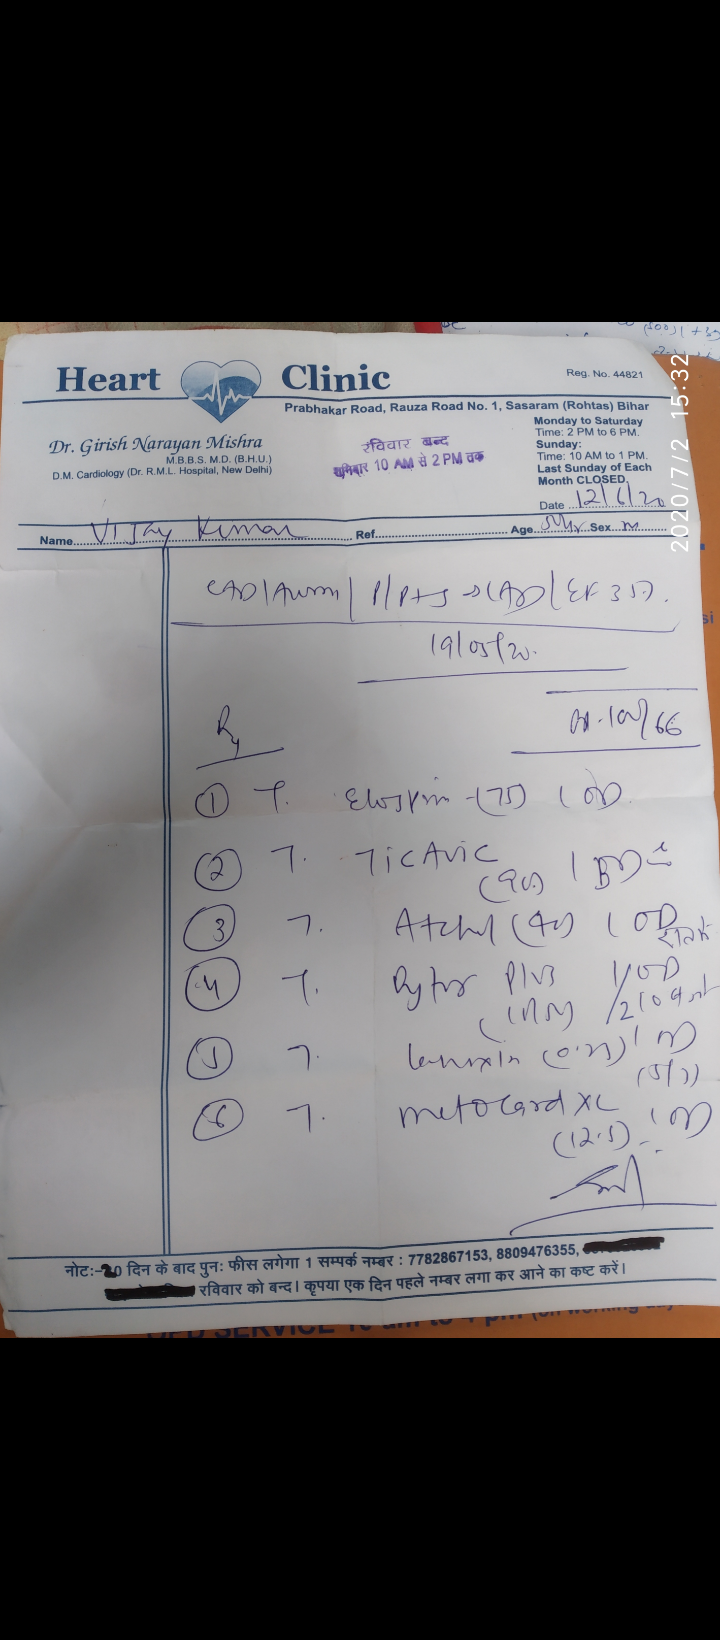 Heart Clinic
Reg. No. 44821
Prabhakar Road, Rauza Road No. 1, Sasaram (Rohtas) Bihar
Dr. Girish Narayan Mishra
M.B.B.S. M.D. (B.H.U.)
D.M. Cardiology (Dr. R.M.L. Hospital, New Delhi)
रविवार बन्द
शनिवार 10 AM से 2 PM तक
Monday to Saturday
Time: 2 PM to 6 PM.
Sunday:
Time: 10 AM to 1 PM.
Last Sunday of Each
Month CLOSED.
Date 12/6/20
2020/7/2 15:32
Name Vijay Kumar Ref. Age Sex M
CAD/AWMI/ EF 35%
19/05/20
100/66
Rx
① T. Ecosprin (75) 1 OD
② T. TICAVIC
(90) 1 BD
③ T. (40) 1 OD
④ T. Rytor Plus 1 OD
⑤ T. Lanoxin (0.25) 1 OD
(5/7)
⑥ T. Metocard XL 1 OD
(12.5)
नोट:-20 दिन के बाद पुनः फीस लगेगा 1 सम्पर्क नम्बर : 7782867153, 8809476355,
रविवार को बन्द। कृपया एक दिन पहले नम्बर लगा कर आने का कष्ट करें।